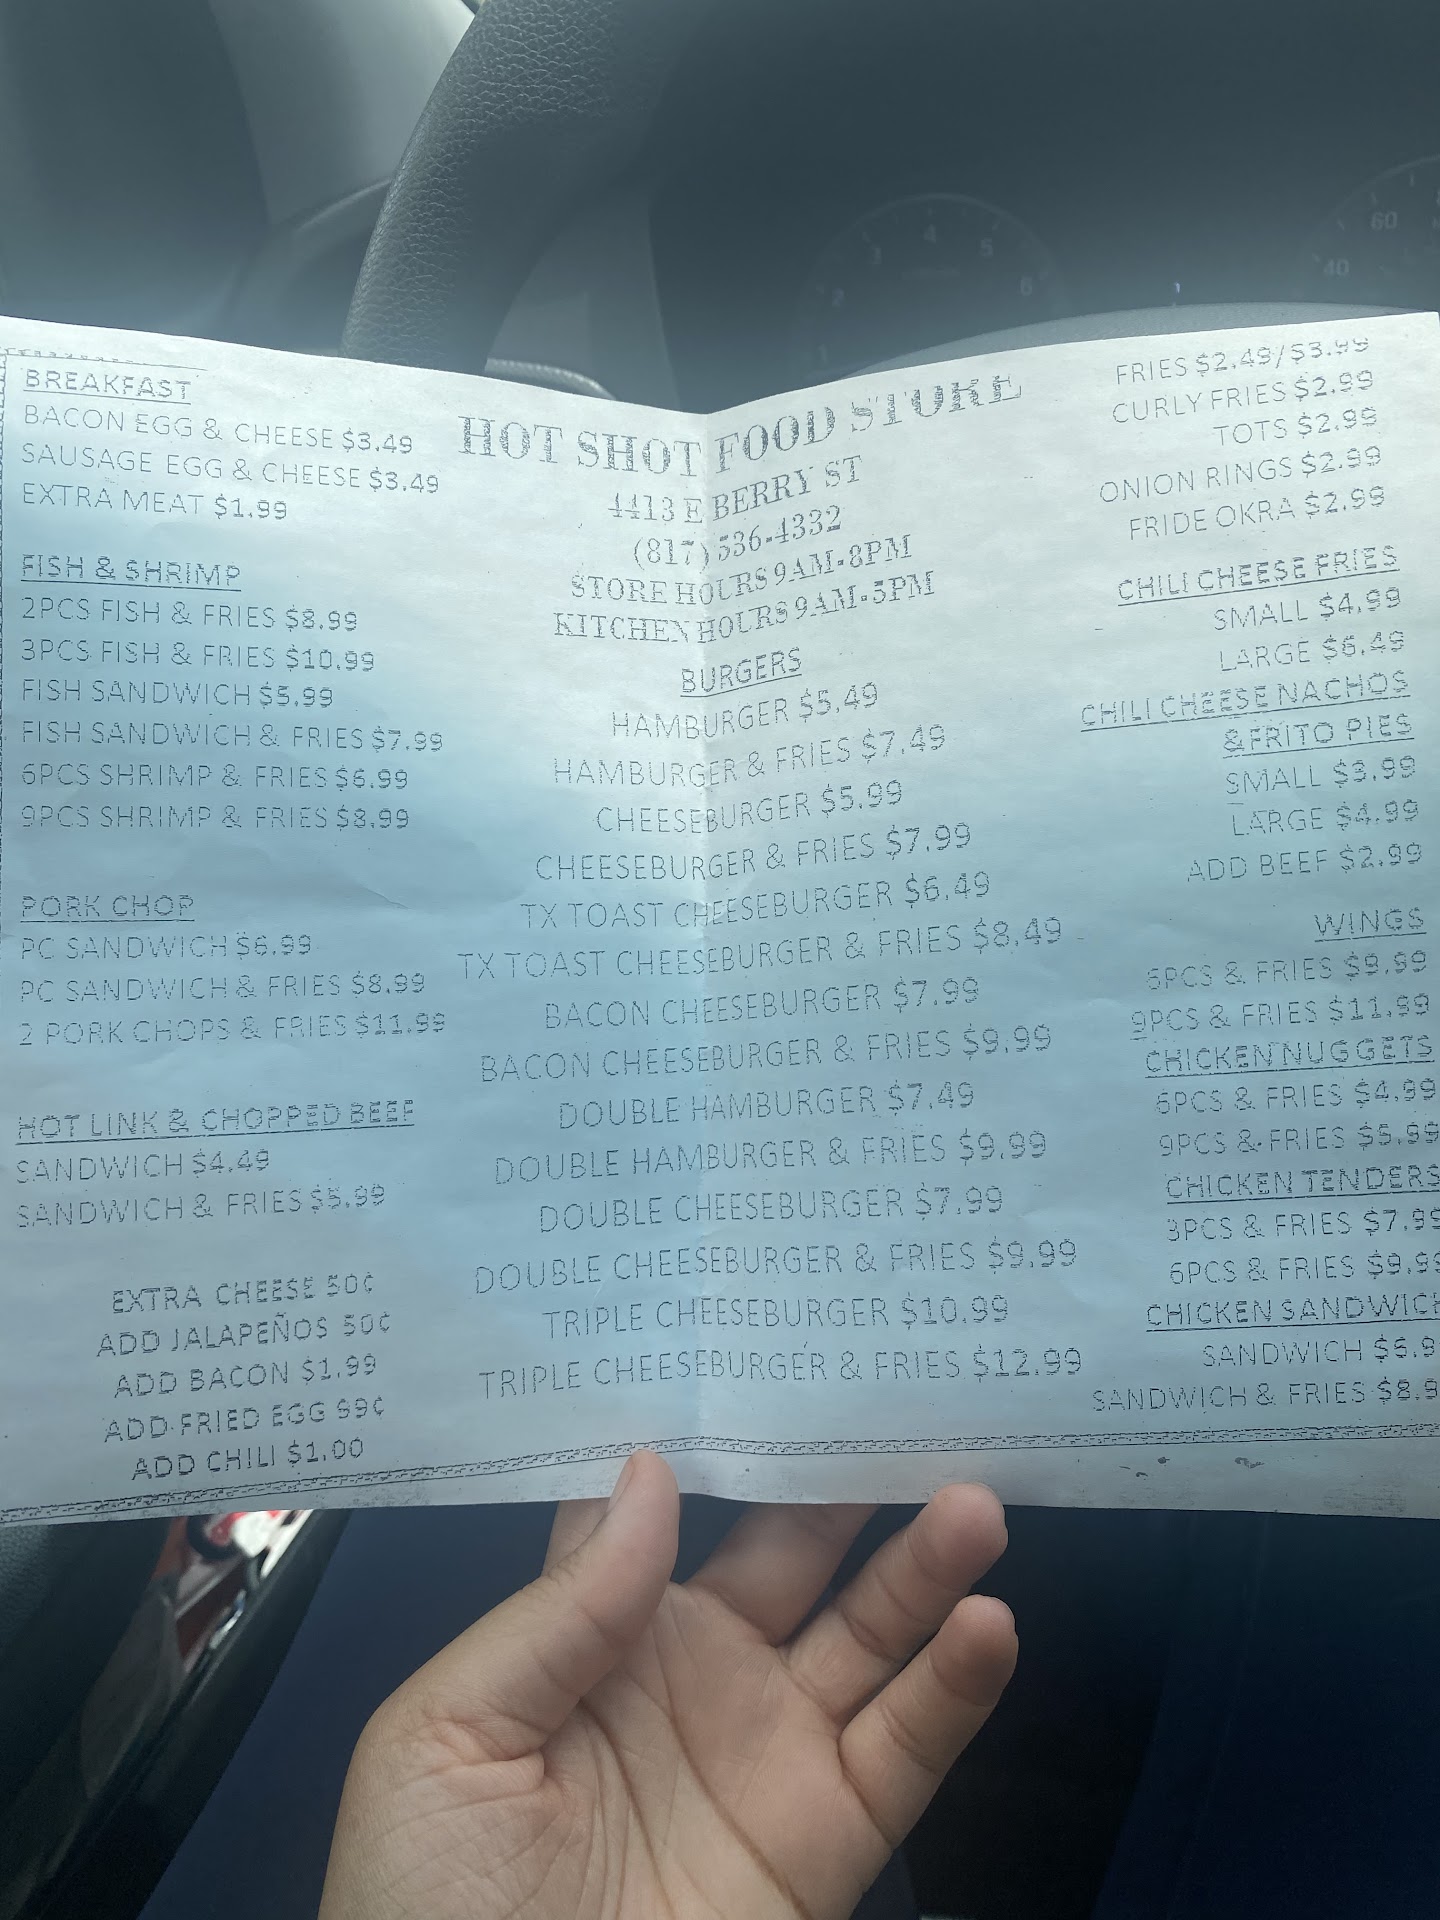 BREAKFAST
BACON EGG & CHEESE $3.49
SAUSAGE EGG & CHEESE $3.49
EXTRA MEAT $1.99
FISH & SHRIMP
2PCS FISH & FRIES $8.99
3PCS FISH & FRIES $10.99
FISH SANDWICH $5.99
FISH SANDWICH & FRIES $7.99
6PCS SHRIMP & FRIES $6.99
9PCS SHRIMP & FRIES $8.99
PORK CHOP
PC SANDWICH $6.99
PC SANDWICH & FRIES $8.99
2 PORK CHOPS & FRIES $11.99
HOT LINK & CHOPPED BEEF
SANDWICH $4.49
SANDWICH & FRIES $5.99
EXTRA CHEESE 50¢
ADD JALAPEÑOS 50¢
ADD BACON $1.99
ADD FRIED EGG 99¢
ADD CHILI $1.00
HOT SHOT FOOD STORE
4413 E BERRY ST
(817) 536-4332
STORE HOURS 9AM-8PM
KITCHEN HOURS 9AM-5PM
BURGERS
HAMBURGER $5.49
HAMBURGER & FRIES $7.49
CHEESEBURGER $5.99
CHEESEBURGER & FRIES $7.99
TX TOAST CHEESEBURGER $6.49
TX TOAST CHEESEBURGER & FRIES $8.49
BACON CHEESEBURGER $7.99
BACON CHEESEBURGER & FRIES $9.99
DOUBLE HAMBURGER $7.49
DOUBLE HAMBURGER & FRIES $9.99
DOUBLE CHEESEBURGER $7.99
DOUBLE CHEESEBURGER & FRIES $9.99
TRIPLE CHEESEBURGER $10.99
TRIPLE CHEESEBURGER & FRIES $12.99
FRIES $2.49/$3.99
CURLY FRIES $2.99
TOTS $2.99
ONION RINGS $2.99
FRIDE OKRA $2.99
CHILI CHEESE FRIES
SMALL $4.99
LARGE $6.49
CHILI CHEESE NACHOS
& FRITO PIES
SMALL $3.99
LARGE $4.99
ADD BEEF $2.99
WINGS
6PCS & FRIES $9.99
9PCS & FRIES $11.99
CHICKEN NUGGETS
6PCS & FRIES $4.99
9PCS & FRIES $5.99
CHICKEN TENDERS
3PCS & FRIES $7.99
6PCS & FRIES $9.99
CHICKEN SANDWICH
SANDWICH $6.9
SANDWICH & FRIES $8.9
2 3 4 5 6
40 60